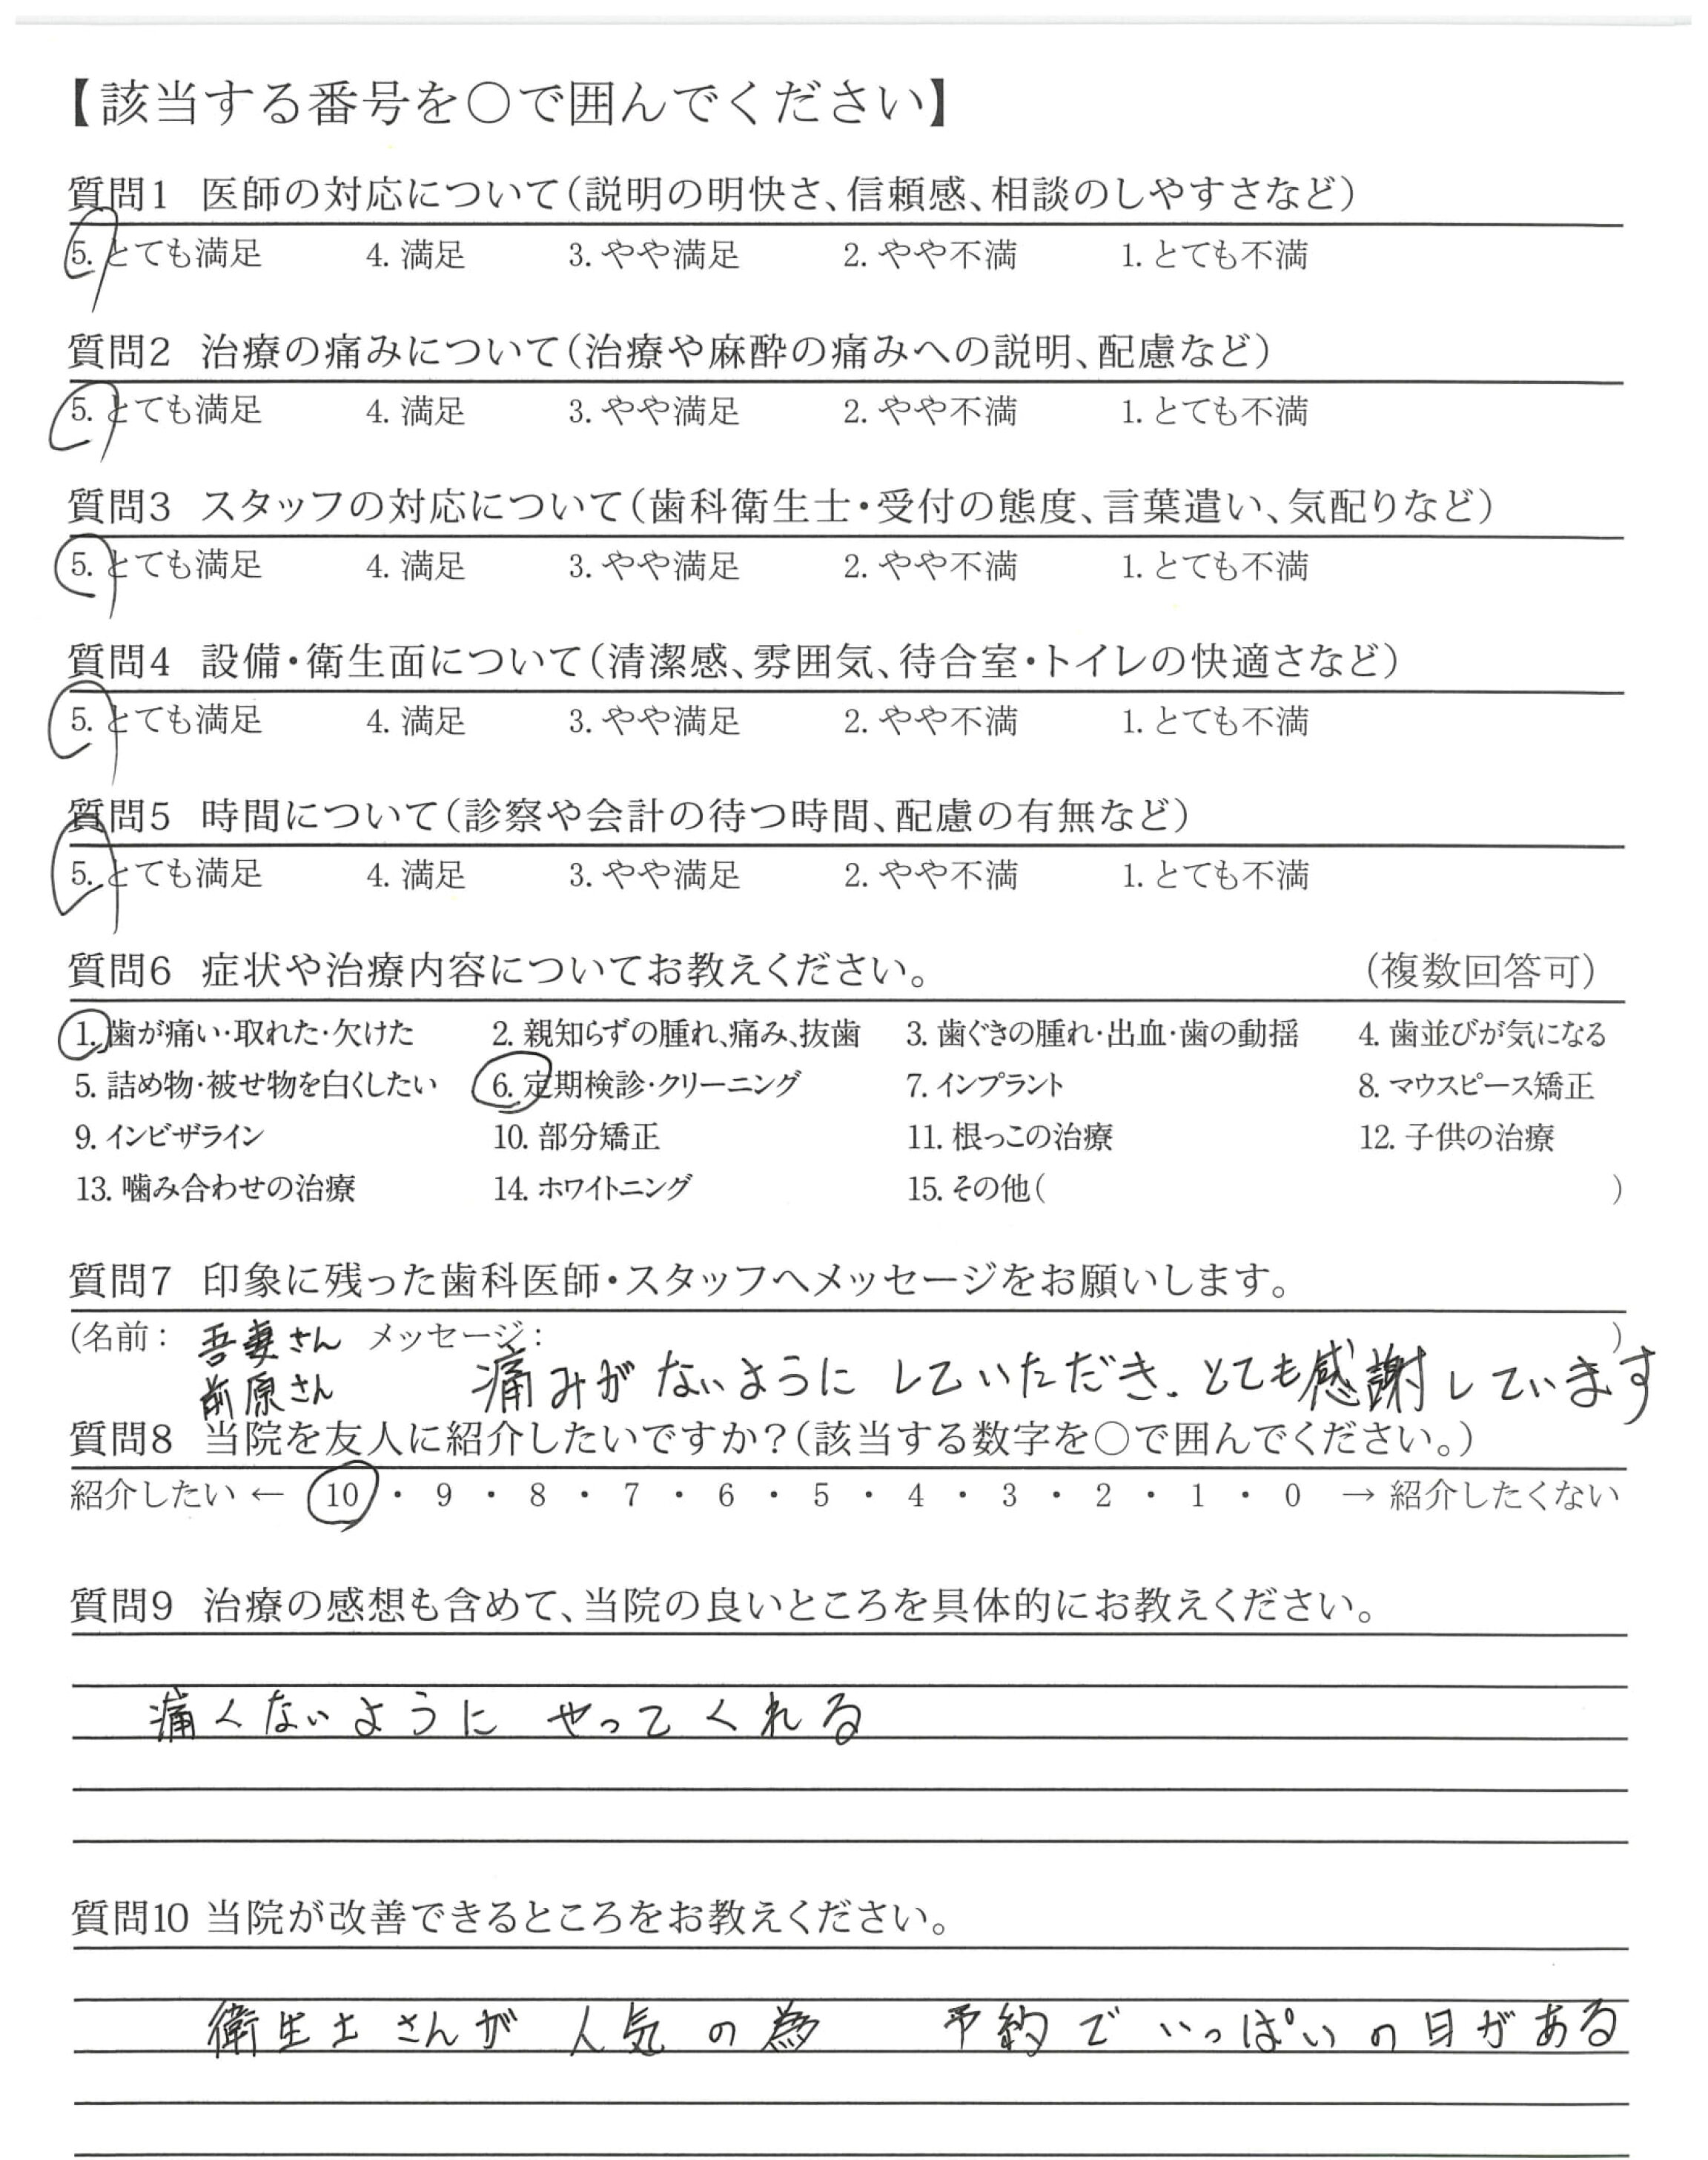 【該当する番号を○で囲んでください】
質問1 医師の対応について(説明の明快さ、信頼感、相談のしやすさなど)
5. とても満足 4. 満足 3. やや満足 2. やや不満 1. とても不満
質問2 治療の痛みについて(治療や麻酔の痛みへの説明、配慮など)
5. とても満足 4. 満足 3. やや満足 2. やや不満 1. とても不満
質問3 スタッフの対応について(歯科衛生士・受付の態度、言葉遣い、気配りなど)
5. とても満足 4. 満足 3. やや満足 2. やや不満 1. とても不満
質問4 設備・衛生面について(清潔感、雰囲気、待合室・トイレの快適さなど)
5. とても満足 4. 満足 3. やや満足 2. やや不満 1. とても不満
質問5 時間について(診察や会計の待つ時間、配慮の有無など)
5. とても満足 4. 満足 3. やや満足 2. やや不満 1. とても不満
質問6 症状や治療内容についてお教えください。 (複数回答可)
1. 歯が痛い・取れた・欠けた 2. 親知らずの腫れ、痛み、抜歯 3. 歯ぐきの腫れ・出血・歯の動揺 4. 歯並びが気になる
5. 詰め物・被せ物を白くしたい 6. 定期検診・クリーニング 7. インプラント 8. マウスピース矯正
9. インビザライン 10. 部分矯正 11. 根っこの治療 12. 子供の治療
13. 噛み合わせの治療 14. ホワイトニング 15. その他( )
質問7 印象に残った歯科医師・スタッフへメッセージをお願いします。
(名前: 吾妻さん メッセージ: )
前原さん 痛みがないようにしていただき、とても感謝しています
質問8 当院を友人に紹介したいですか?(該当する数字を○で囲んでください。)
紹介したい ← 10 ・ 9 ・ 8 ・ 7 ・ 6 ・ 5 ・ 4 ・ 3 ・ 2 ・ 1 ・ 0 → 紹介したくない
質問9 治療の感想も含めて、当院の良いところを具体的にお教えください。
痛くないように やってくれる
質問10 当院が改善できるところをお教えください。
衛生士さんが 人気の為 予約でいっぱいの日がある